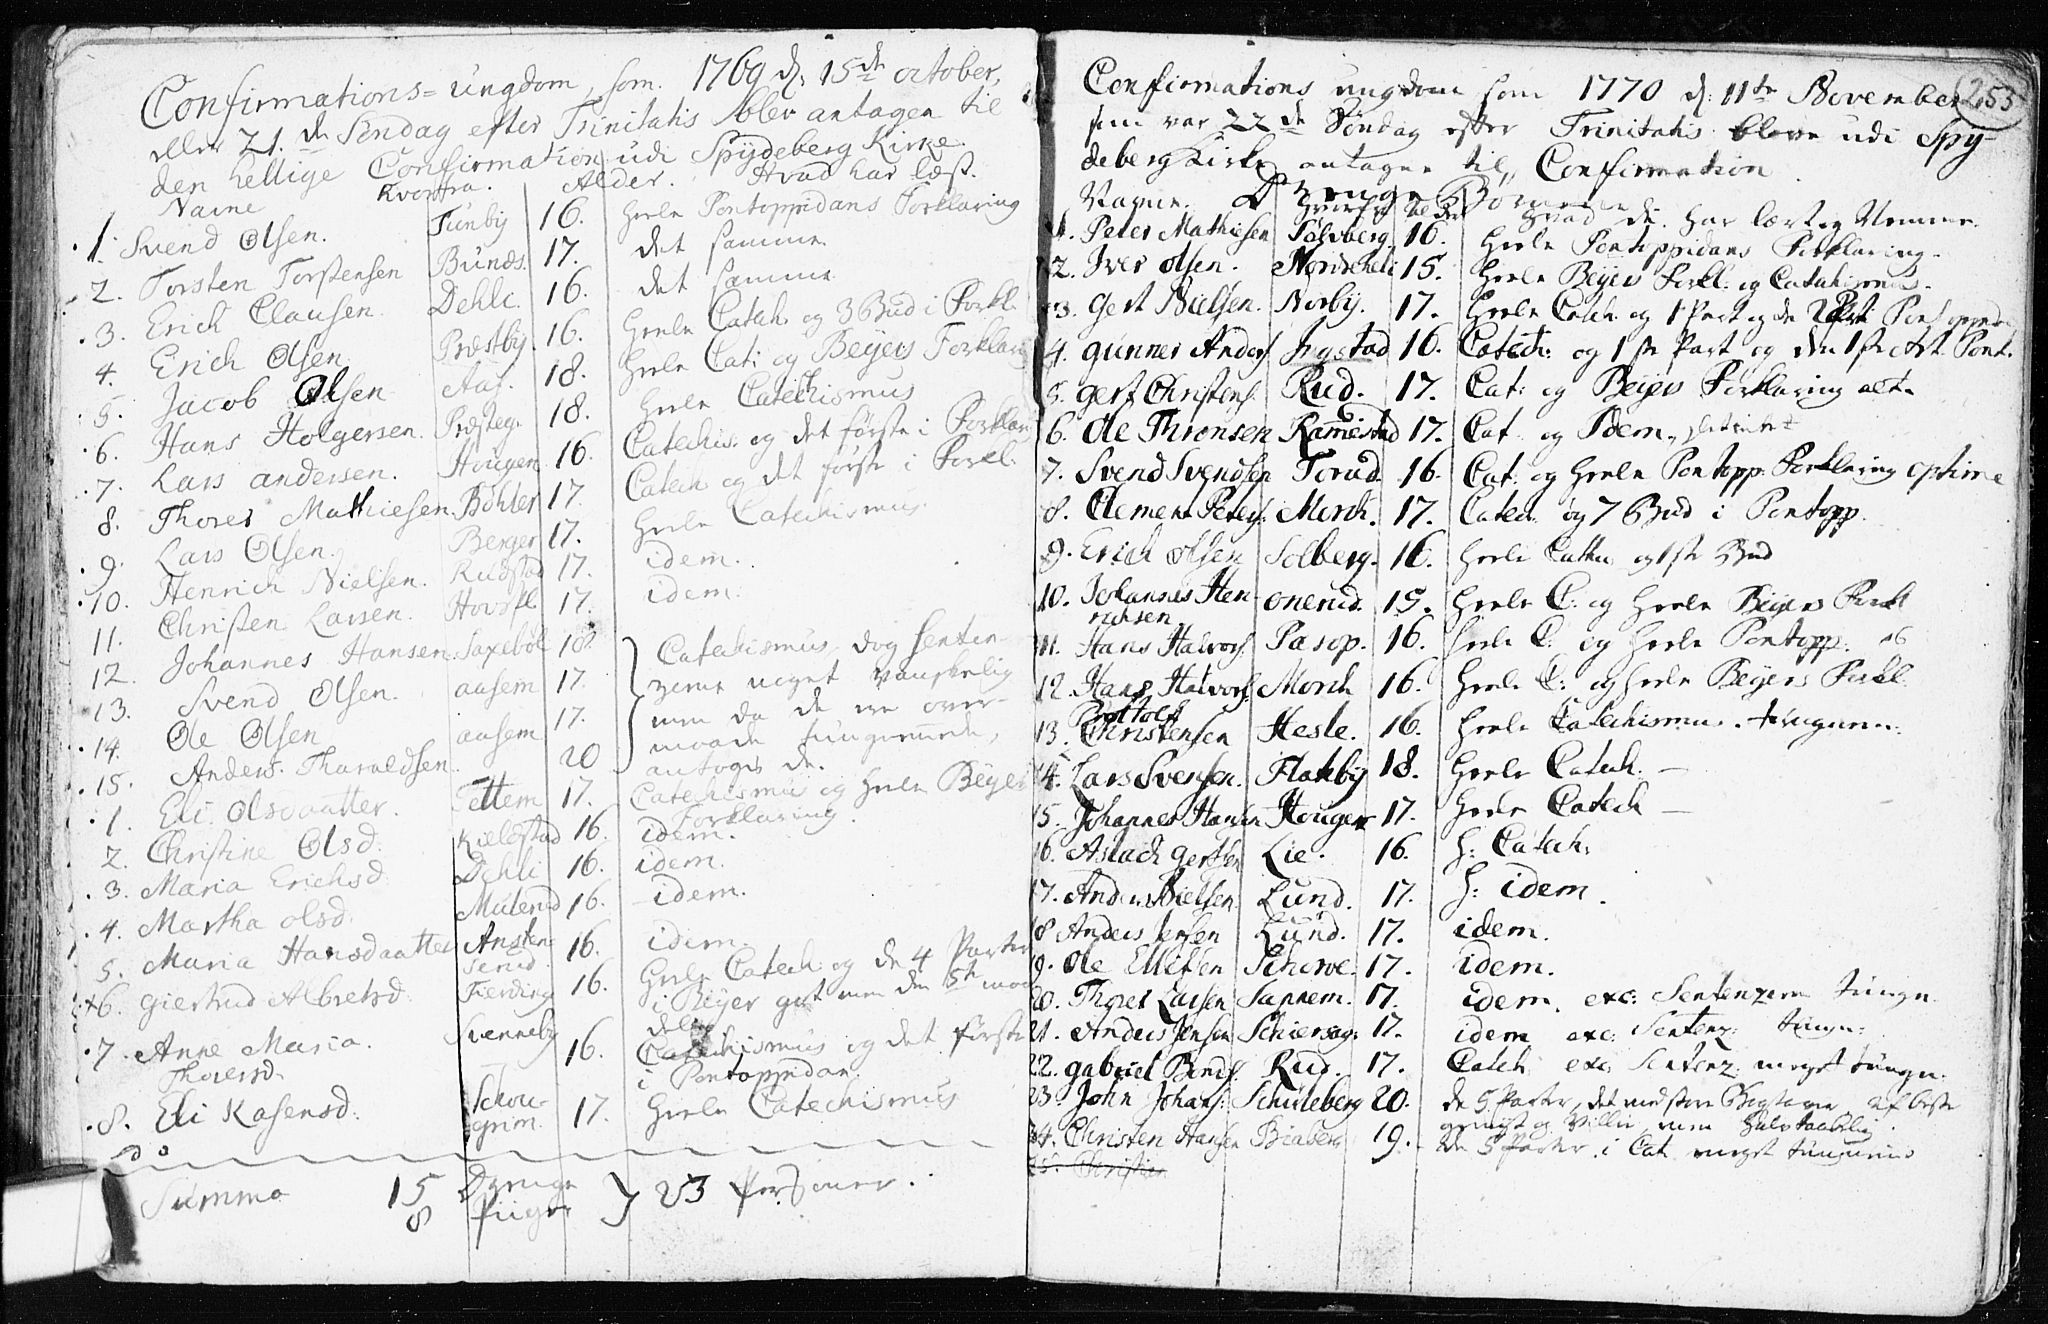 Confirmations= ungdom, som. 1769 d: 15de october,
eller 21.de Søndag efter Trinitatis blev antagen til
den hellige Confirmation udi Spydeberg Kirke.
Navne Hvorfra. Alder. Hvad har læst.
1. Svend Olsen. Tunby 16. heele Pontoppidans Forklaring
2. Torsten Torstensen Bunds. 17. det samme.
3. Erich Clausen. Dehli. 16. det samme.
4. Erich Olsen. Præstby. 16. heele Catech. og 3 Bud i Forkl.
5. Jacob Olsen Aas. 18. heele Cat: og Beyers Forklaring
6. Hans Holgersen. Præsteg. 18. heele Catechismus
7. Lars andersen. Hougen 16. Catechis: og det første i Forklar
8. Thorer Mathiesen. Bøhler 17. Catech og det første i Forkl.
9. Lars Olsen. Berger 17. heele Catechismus.
10. Henrich Nielsen. Rudstad 17. idem.
11. Christen Larsen. 17. idem.
12. Johannes Hansen. Saxebøl 18. Catechismus, dog senten-
13. Svend Olsen. aasem 17. zerne meget vanskelig
14. Ole Olsen aasem 17. men da de ere over-
15. Anders Tharaldsen. 20 maade tungnemmede,
antoges de.
1. Eli Olsdaatter. Tettem 17. Catechismus og heele Beyers
Forklaring.
2. Christine Olsd: Kielestad 16. idem.
3. Maria Erichsd Dehli 16. idem.
4. Martha olsd: Mulerud 16. idem.
5. Maria Hansdaatter Ansten-
serud. 16. idem.
6. Giertrud Albretsd. Fierding 16. heele Catech: og de 4 Parter
i Beyer gat men den 5te
7. Anne Maria Thoersd. Svenneby 16. Catechismus og det første
i Pontoppidan.
8. Eli Kasensd. Schou-
grim. 17. heele Catechismus
Summa 15 Drenge
8 Piiger } 23 Personer.
253
Confirmations ungdom som 1770 d: 11te November
som var 22de Søndag efter Trinitatis bleve udi Spy-
deberg Kirke antagne til Confirmation.
Drenge Børnene.
Navne. Hvorfra Alder Hvad de har lært og Nemme.
1. Peter Mathiesen Solberg. 16. Heele Pontoppidans Forklaring.
2. Iver Olsen. 15. Heele Beyers Forkl. og Catechismus.
3. Gert Nielsen. Norby. 17. Heele Catech. og 1 Part og de 2
4. Gunner Anders. Ingstad 16. Catech: og 1ste Part og den 1ste Art. Pont.
5. Gert Christens. Rud. 17. Cat: og Beyers Forklaring alt.
6. Ole Thronsen Ramestad 17. Cat. og Idem.
7. Svend Svendsen Torud. 16. Cat: og heele Pontopp: Forklaring optime
8. Clement Peters: Morch. 17. Catech: og 7 Bud i Pontopp.
9. Erich Olsen Solberg. 16. heele Catech og 1ste Bud
10. Johannes Hen-
richsen onerud. 15. Heele C: og heele Beyers Forkl
11. Hans Halvors. Pasop. 16. heele C. og heele Pontopp.
12. Hans Halvors. Morch 16. Heele C: og heele Beyers Forkl.
13. Christensen Hesle. 16. Heele Catechismus.
14. Lars Svensen. Flateby 18. Heele Catech. —
15. Johannes Hansen Hougen 17. Heele Catech —
16. Aslach Gertsen Lie. 16. H: Catech:
17. Anders Nielsen Lund. 17. H: idem.
18 Anders Jensen Lund. 17. idem.
19. Ole Ellefsen Schurve. 17. idem.
20. Thorer Larsen Sannem. 17. idem. exc: Sentenzerne tungn.
21. Anders Jensen Schiersag: 17. idem exc: Sentenz: tungn:
22. Gabriel Bends. Rud. 17. Catech: exc: Sentenz: meget tungn.
23. John Johans: Schuleberg 20. de 5 Parter, det næstsom Begreben af beste
gemyt og Villie, men
24. Christen Hansen Biaberg 19. De 5 Parter i Cat. meget tungnem
25. Christen